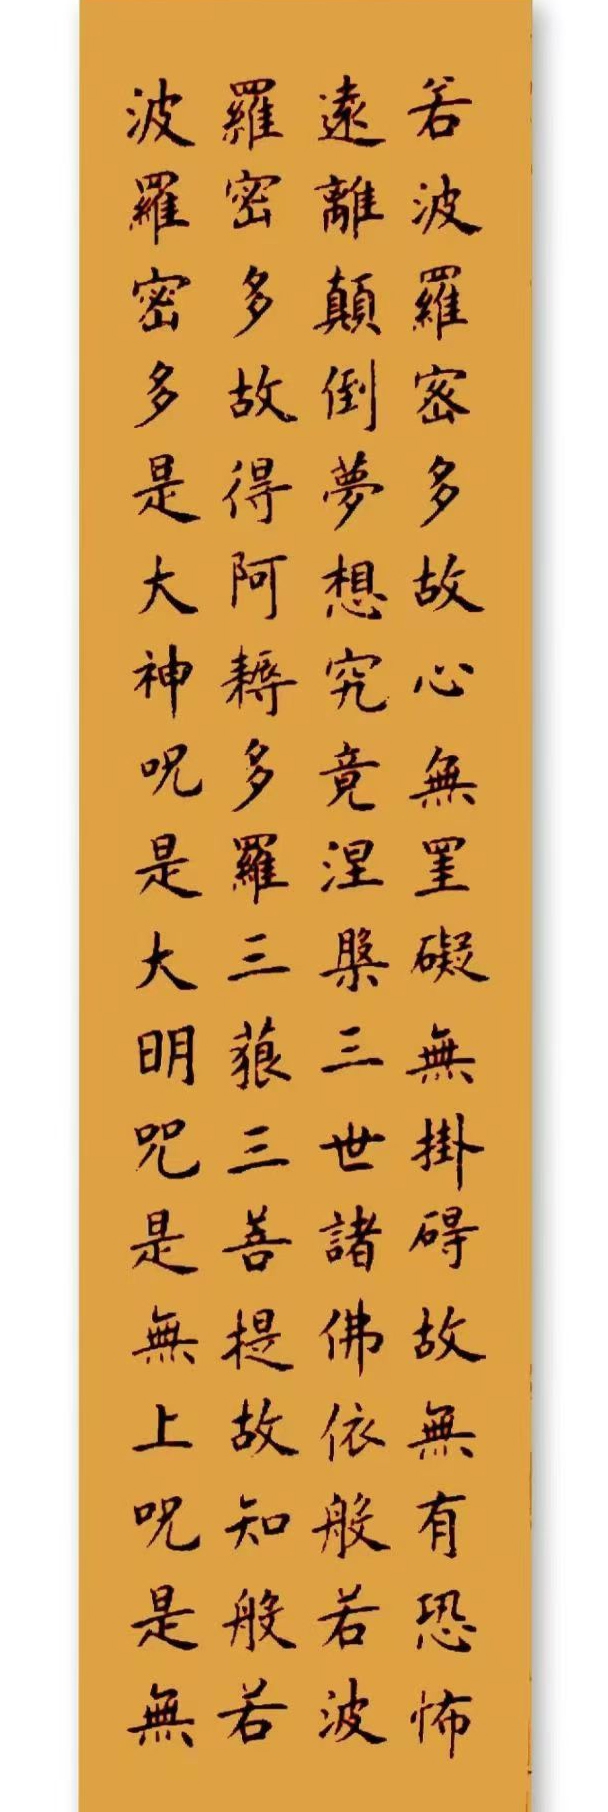 若波羅密多故心無罣礙無掛碍故無有恐怖
遠離顛倒夢想究竟涅槃三世諸佛依般若波
羅密多故得阿耨多羅三藐三菩提故知般若
波羅密多是大神呪是大明咒是無上呪是無